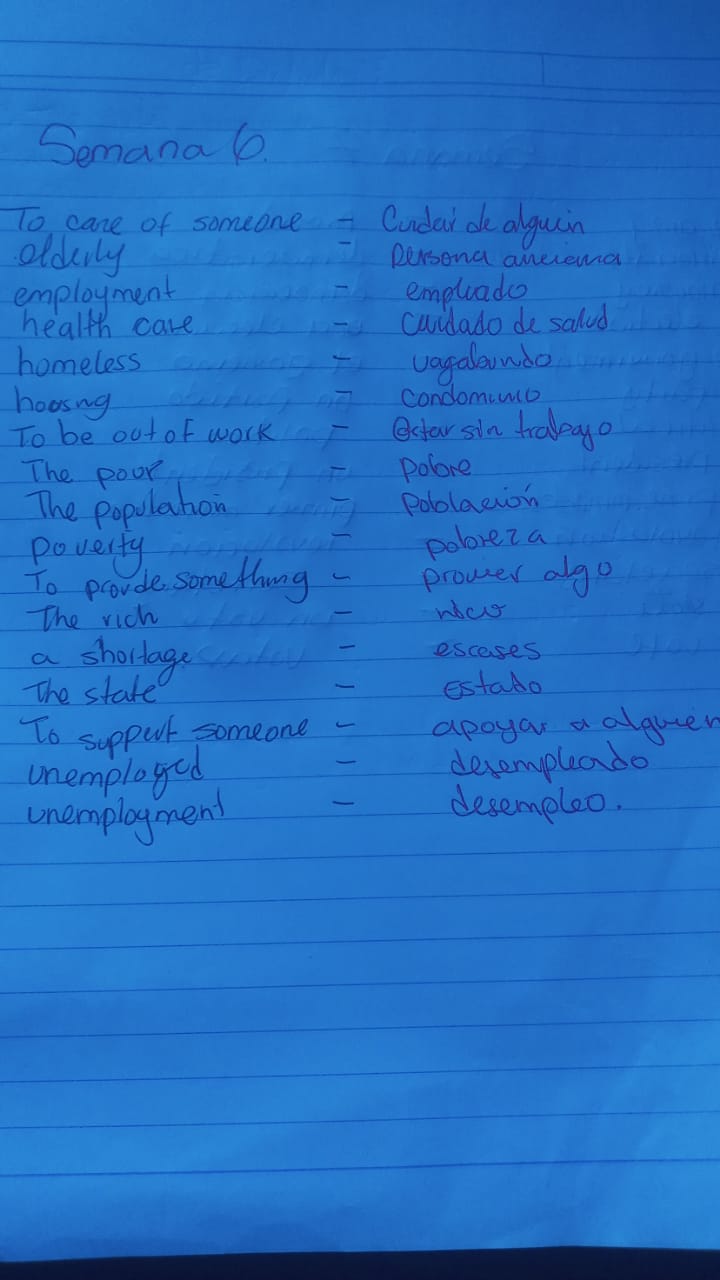 Semana 6.
To care of someone - Cuidar de alguin
elderly - persona anciana
employment - empleado
health care - cuidado de salud
homeless - vagabundo
hoosng - condominio
To be out of work - Estar sin trabajo
The poor - pobre
The population - población
poverty - pobreza
To provde something - prover algo
The rich - rico
a shortage - escases
The state - Estado
To support someone - apoyar a alguien
unemployed - desempleado
unemployment - desempleo.